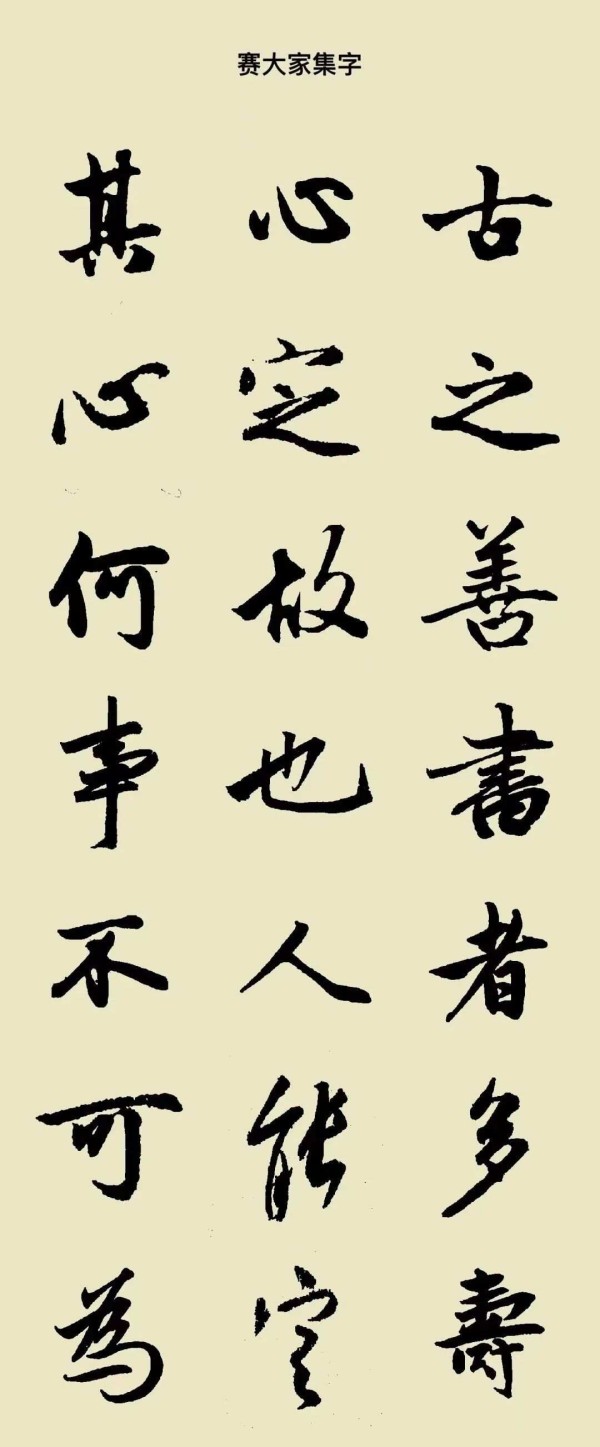 赛大家集字
古之善書者多壽
心定故也人能定
其心何事不可為